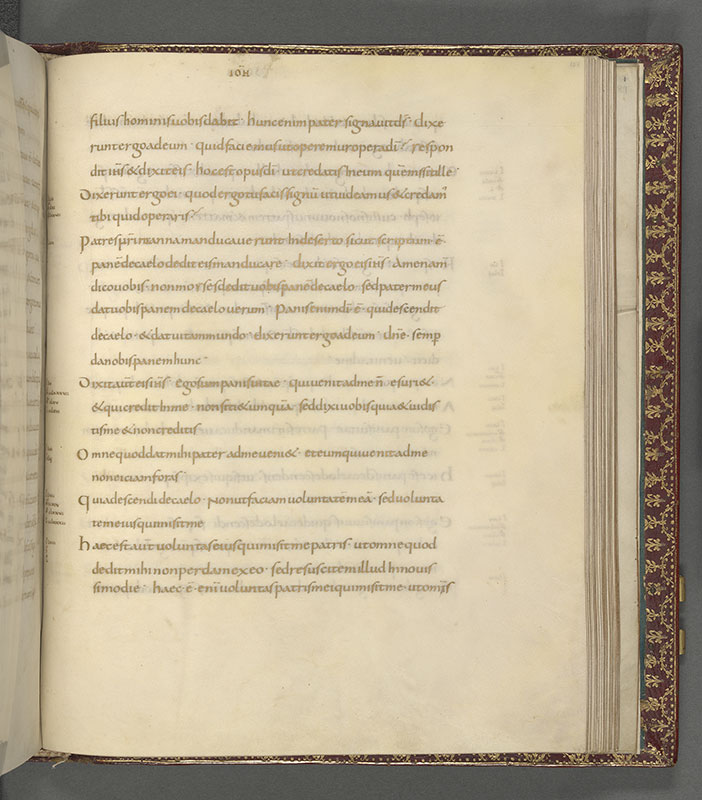 IOH
filiushominisuobisdabit · huncenimpatersignauitd̄s · dixe
runtergoadeum · quidfaciemusutoperemuroperad̄i · respon
ditih̄s&dixiteis · hocestopusd̄i utcredatisineum quēmisitille ·
Dixeruntergoei · quodergotufacissignū utuideamus&credam'
tibiquidoperaris ·
Patresn̄rimannamanducauerunt Indeserto sicut scriptum ē ·
panēdecaelodediteismanducare · dixitergoeisih̄s · Amenam̄
dicouobis · nonmosesdedituobispanēdecaelo · sedpatermeus
datuobispanemdecaelouerum · Panisenimd̄i ē · quidescendit
decaelo · &datuitammundo · dixeruntergoadeum · dn̄e · semp
danobispanemhunc ·
Dixitaūteisih̄s · Egosumpanisuitae · quiuenitadmen̄ · esuri& ·
&quicreditInme · nonsiti&umquā · seddixiuobisquia&uidis
tisme&noncreditis
Omnequoddatmihipater admeueni& · eteumquiuenitadme
noneiciamforas ·
Quiadescendidecaelo · Nonutfaciamuoluntatēmeā · seduolunta
temeiusquimisitme
haecestaūtuoluntaseiusquimisitmepatris · utomnequod
deditmihinonperdamexeo · sedresuscitemillud Innouis
simodie · haec ē · enīuoluntaspatrismeiquimisitme · utomīs